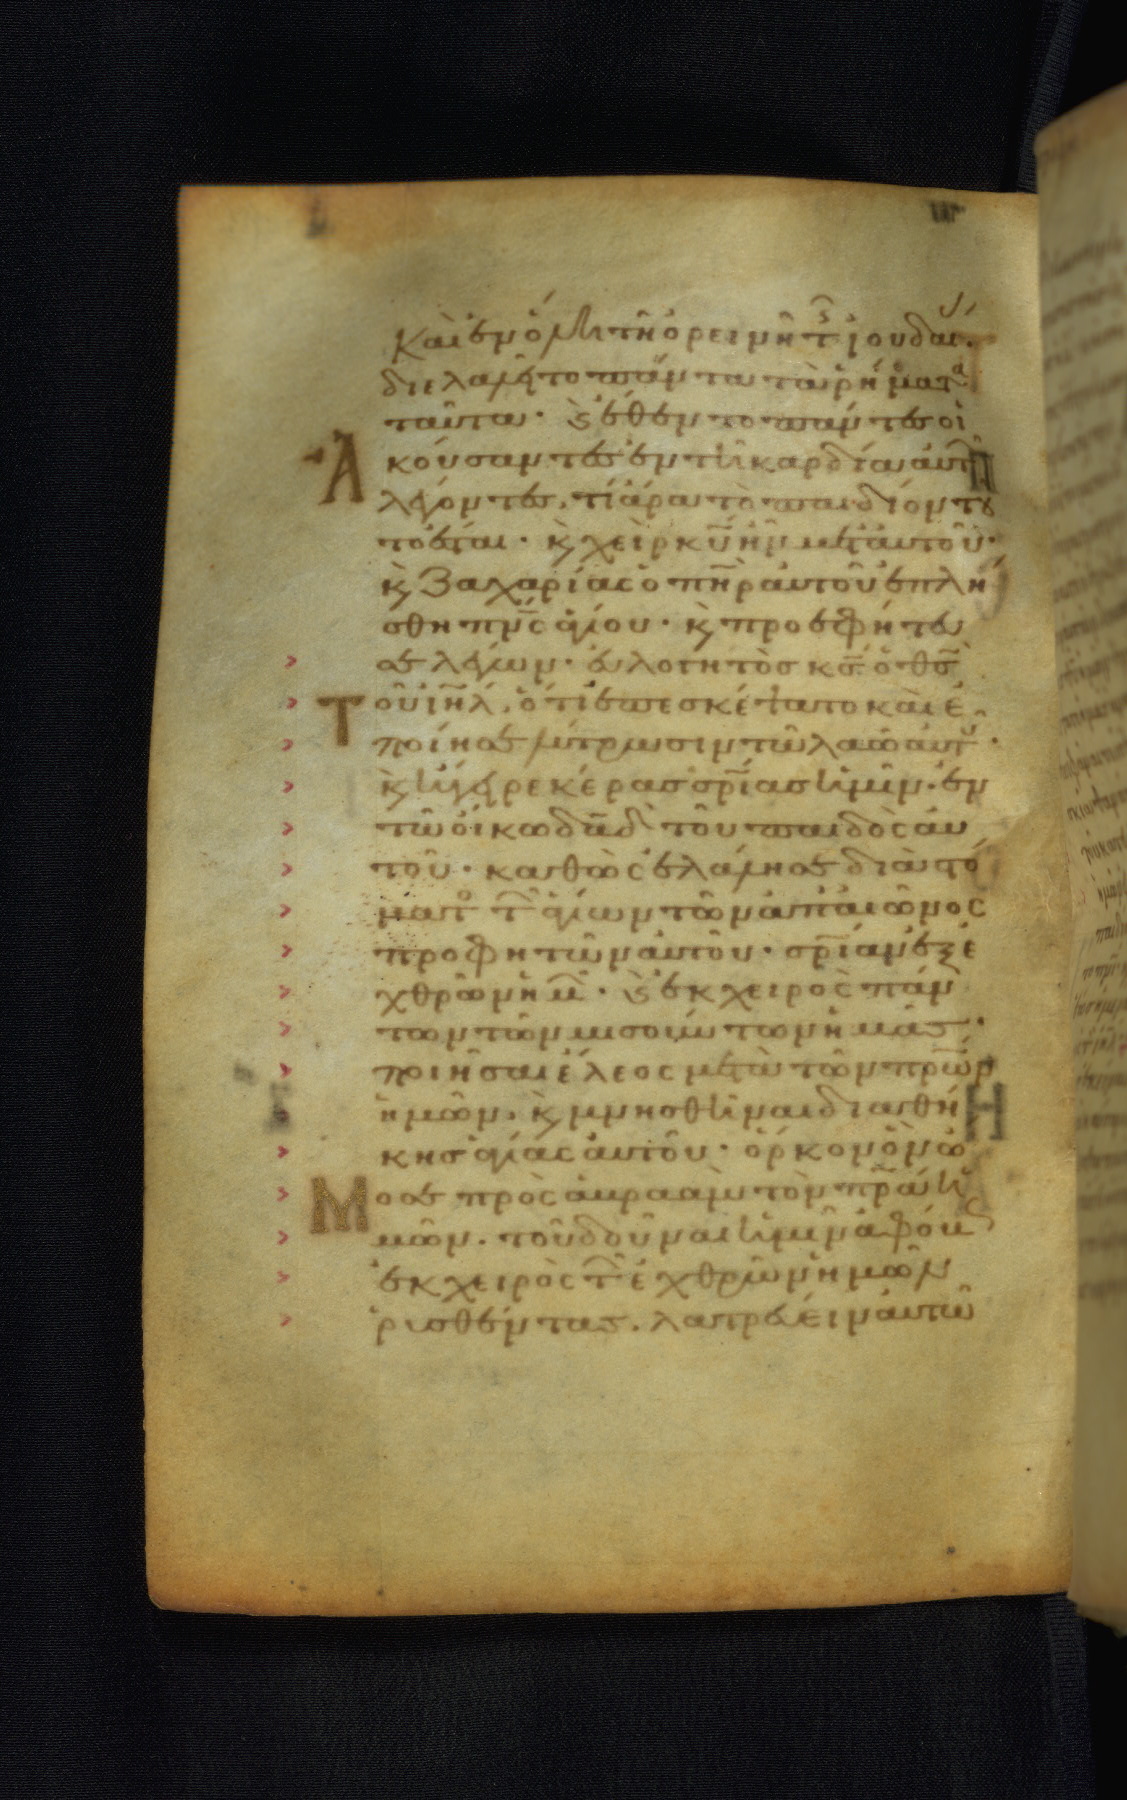 Καὶ ἐν ὅλη τῆ ὀρεινῆ τῆς ἰουδαίας.
διελαλεῖτο πάντα τὰ ῥήματα
ταῦτα· ϗ ἔθεντο πάντες οἱ
ἀκούσαντες ἐν τῆ καρδία αὐτῶν
λέγοντες, τί ἄρα τὸ παιδίον τοῦ
το ἔσται· ϗ χεὶρ κυ̅ ἦν μετ' αὐτοῦ·
ϗ Ζαχαρίας ὁ πη̅ρ αὐτοῦ ἐπλή
σθη πνς̅ ἁγίου· ϗ προεφήτευ
σε λέγων· εὐλογητὸς κς̅ ὁ θς̅
Τοῦ ιη̅λ, ὅτι ἐπεσκέψατο καὶ ἐ
ποίησε λύτρωσιν τῶ λαῶ αὐτοῦ·
ϗ ἤγειρε κέρας σρ̅ίας ἡμῖν· ἐν
τῶ οἴκω δα̅δ τοῦ παιδὸς αὐ
τοῦ· καθὼς ἐλάλησε διὰ στό
ματος τῶν ἁγίων τῶν ἀπ' αἰῶνος
προφητῶν αὐτοῦ· σρ̅ίαν ἐξ ἐ
χθρῶν ἡμῶν· ϗ ἐκ χειρὸς πάν
των τῶν μισούντων ἡμᾶς·
ποιῆσαι ἔλεος μετὰ τῶν πρ̅ων
ἡμῶν· ϗ μνησθῆναι διαθή
κης ἁγίας αὐτοῦ· ὅρκον ὃν ὤ
Μοσε πρὸς ἀβραὰμ τὸν πρ̅α ἡ
μῶν· τοῦ δοῦναι ἡμῖν ἀφόβως
ἐκ χειρὸς τῶν ἐχθρῶν ἡμῶν
ῥυσθέντας· λατρεύειν αὐτῶ